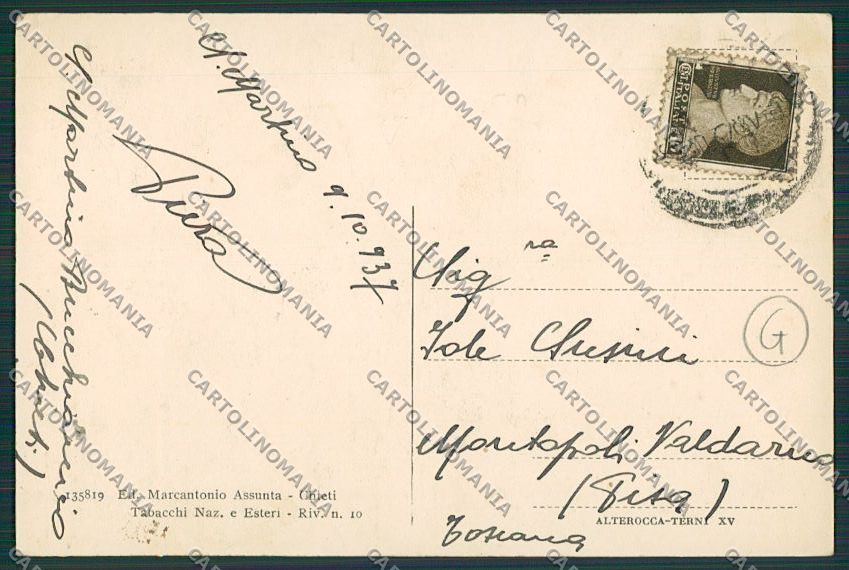 S. Martino
9.10.937
Piera
S. Martino Bucchianico
(Chieti)
135819 Ed. Marcantonio Assunta - Chieti
Tabacchi Naz. e Esteri - Riv. n. 10
POSTE
ITALIANE
Sig ra
Iole Susini
G
Montopoli Valdarno
(Pisa)
Toscana
ALTEROCCA-TERNI XV
CARTOLINOMANIA